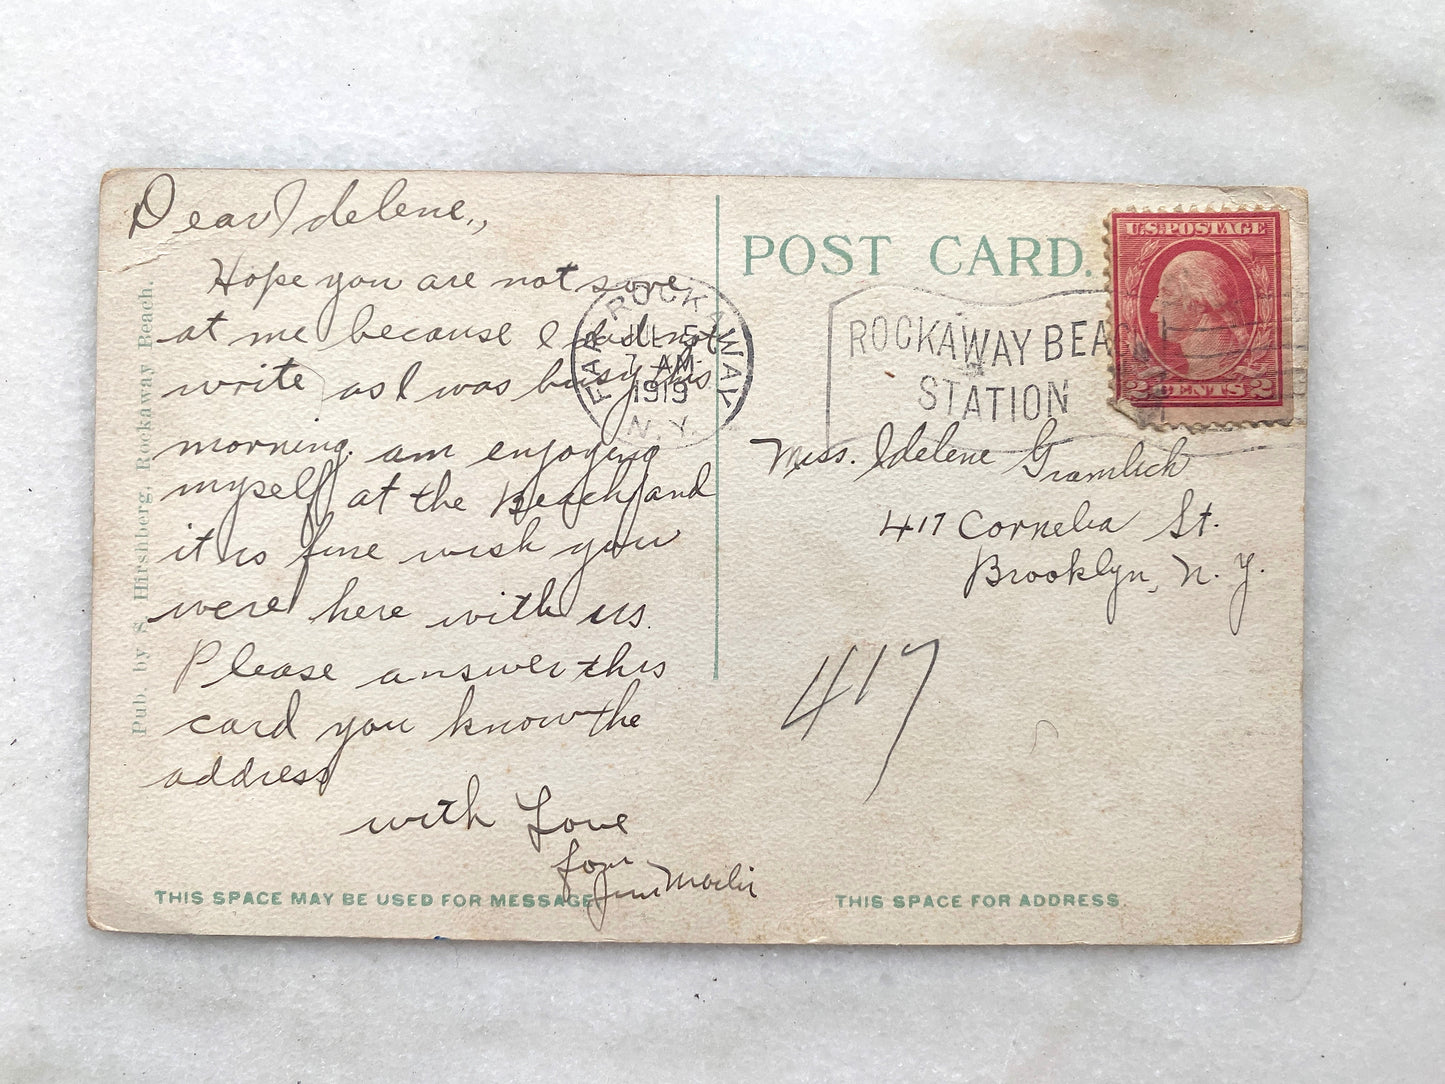 Dear Idelene,,
Hope you are not sore
at me because I did not
write as I was busy this
morning. am enjoying
myself at the Beach and
it is fine wish you
were here with us.
Please answer this
card you know the
address
with Love
from
Pub. by S. Hirshberg, Rockaway Beach.
THIS SPACE MAY BE USED FOR MESSAGE
POST CARD.
FAR ROCKAWAY
JUL 5
7 AM
1919
N.Y.
ROCKAWAY BEACH
STATION
U.S. POSTAGE
2 CENTS 2
Miss. Idelene Gramlich
417 Cornelia St.
Brooklyn, N. Y.
417
THIS SPACE FOR ADDRESS.